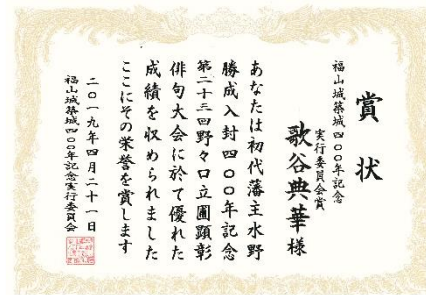 賞状
福山城築城四〇〇年記念
実行委員会賞
歌谷典華様
あなたは初代藩主水野
勝成入封四〇〇年記念
第二十三回野々口立圃顕彰
俳句大会に於て優れた
成績を収められました
ここにその栄誉を賞します
二〇一九年四月二十一日
福山城築城四〇〇年記念実行委員会